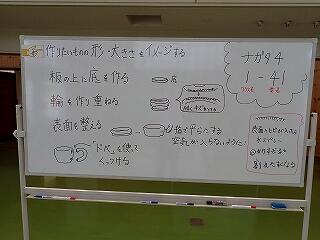 作りたいものの形・大きさをイメージする
板の上に底を作る
底
輪を作り重ねる
表面を整える
指で平らにする
空気が入らないように!
「ドベ」を使って
くっつける
ナガタ4
1-41
クラス名 番号
表面にヒビが入ったら